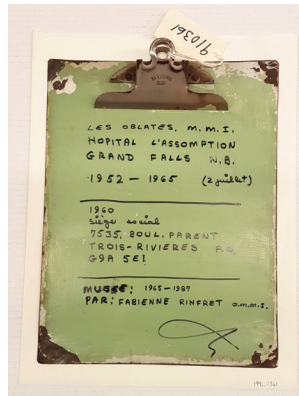 910361
LES OBLATES, M.M.I.
HOPITAL L'ASSOMPTION
GRAND FALLS N.B.
1952 - 1965 (2 juillet)
1960
siège social
7535, BOUL. PARENT
TROIS-RIVIERES P.Q.
G9A 5E1
MUSÉE: 1965-1987
PAR: FABIENNE RINFRET O.M.M.I.
1991.0361